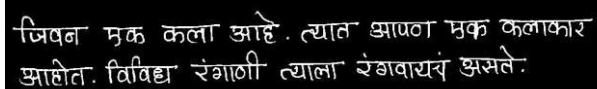 जिवन एक कला आहे. त्यात आपण एक कलाकार
आहोत. विविध रंगाणी त्याला रंगवायचं असते.